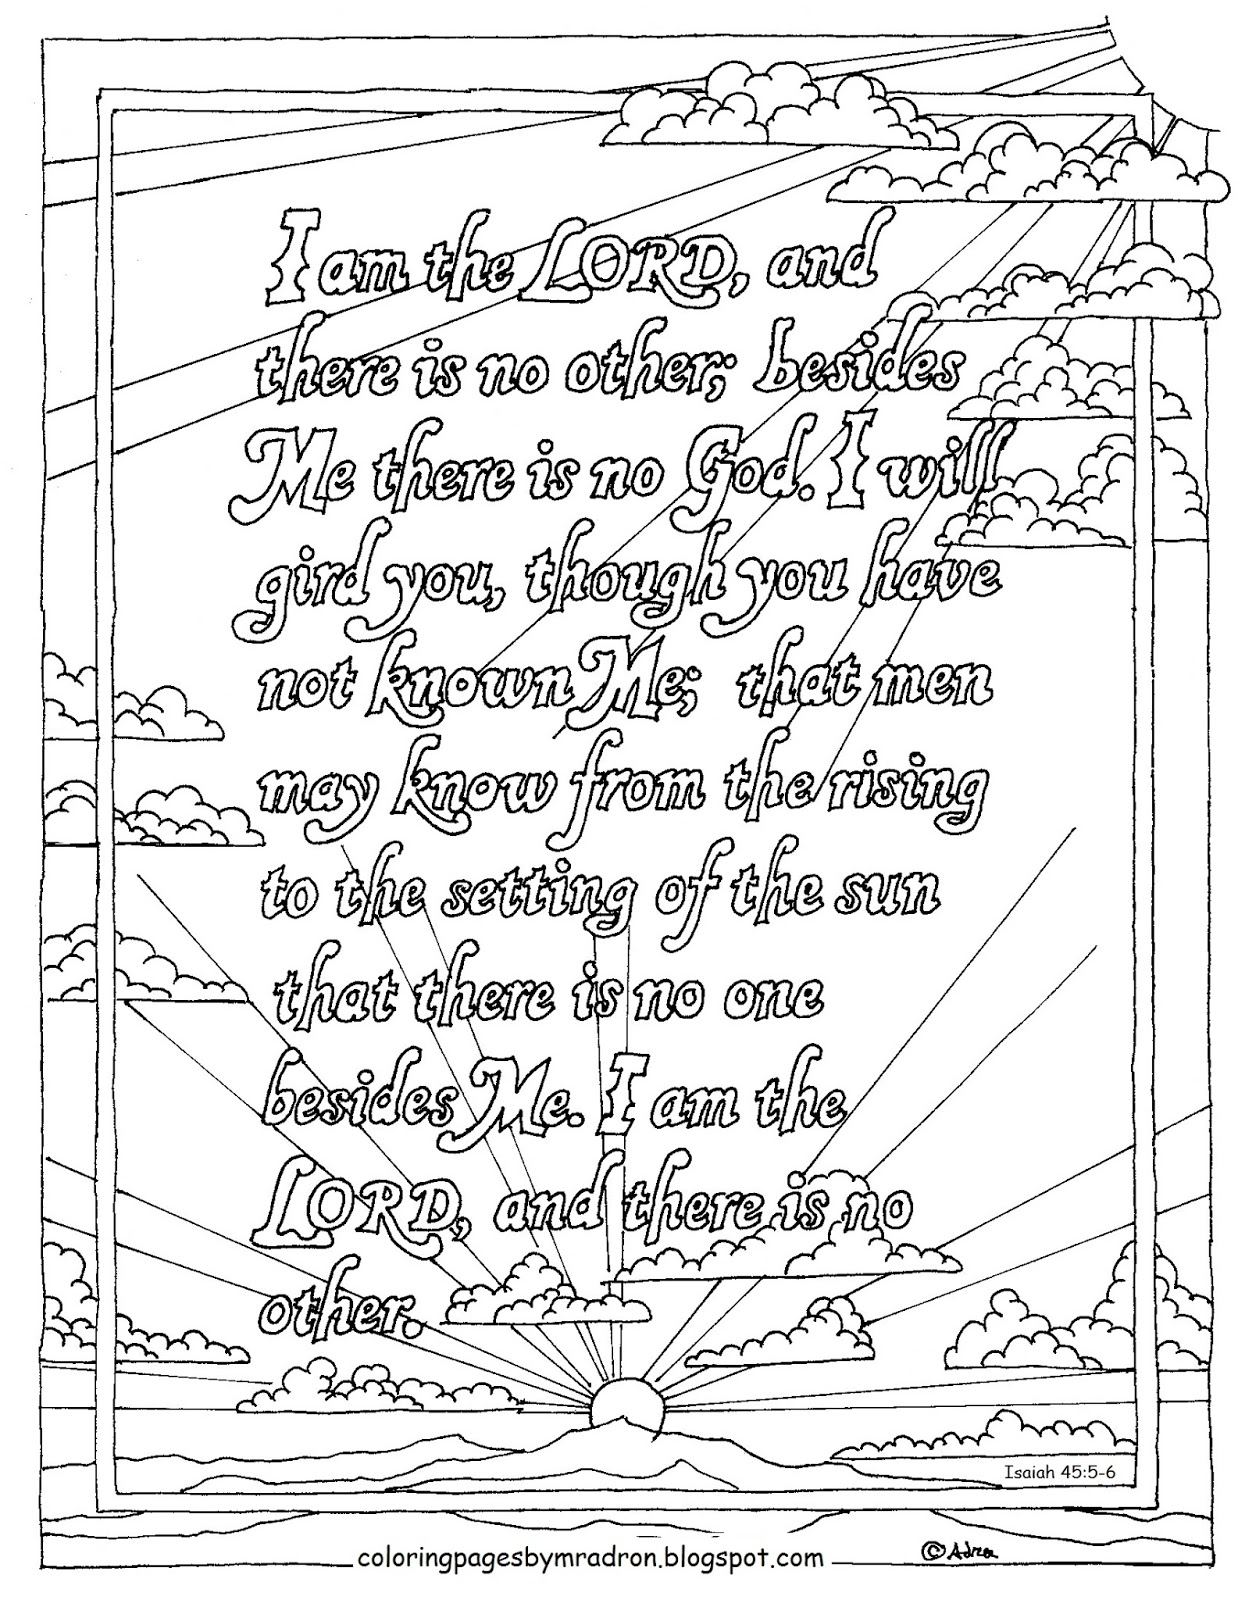 I am the LORD, and
there is no other; besides
Me there is no God. I will
gird you, though you have
not known Me; that men
may know from the rising
to the setting of the sun
that there is no one
besides Me. I am the
LORD, and there is no
other.
Isaiah 45:5-6
coloringpagesbymradron.blogspot.com
©